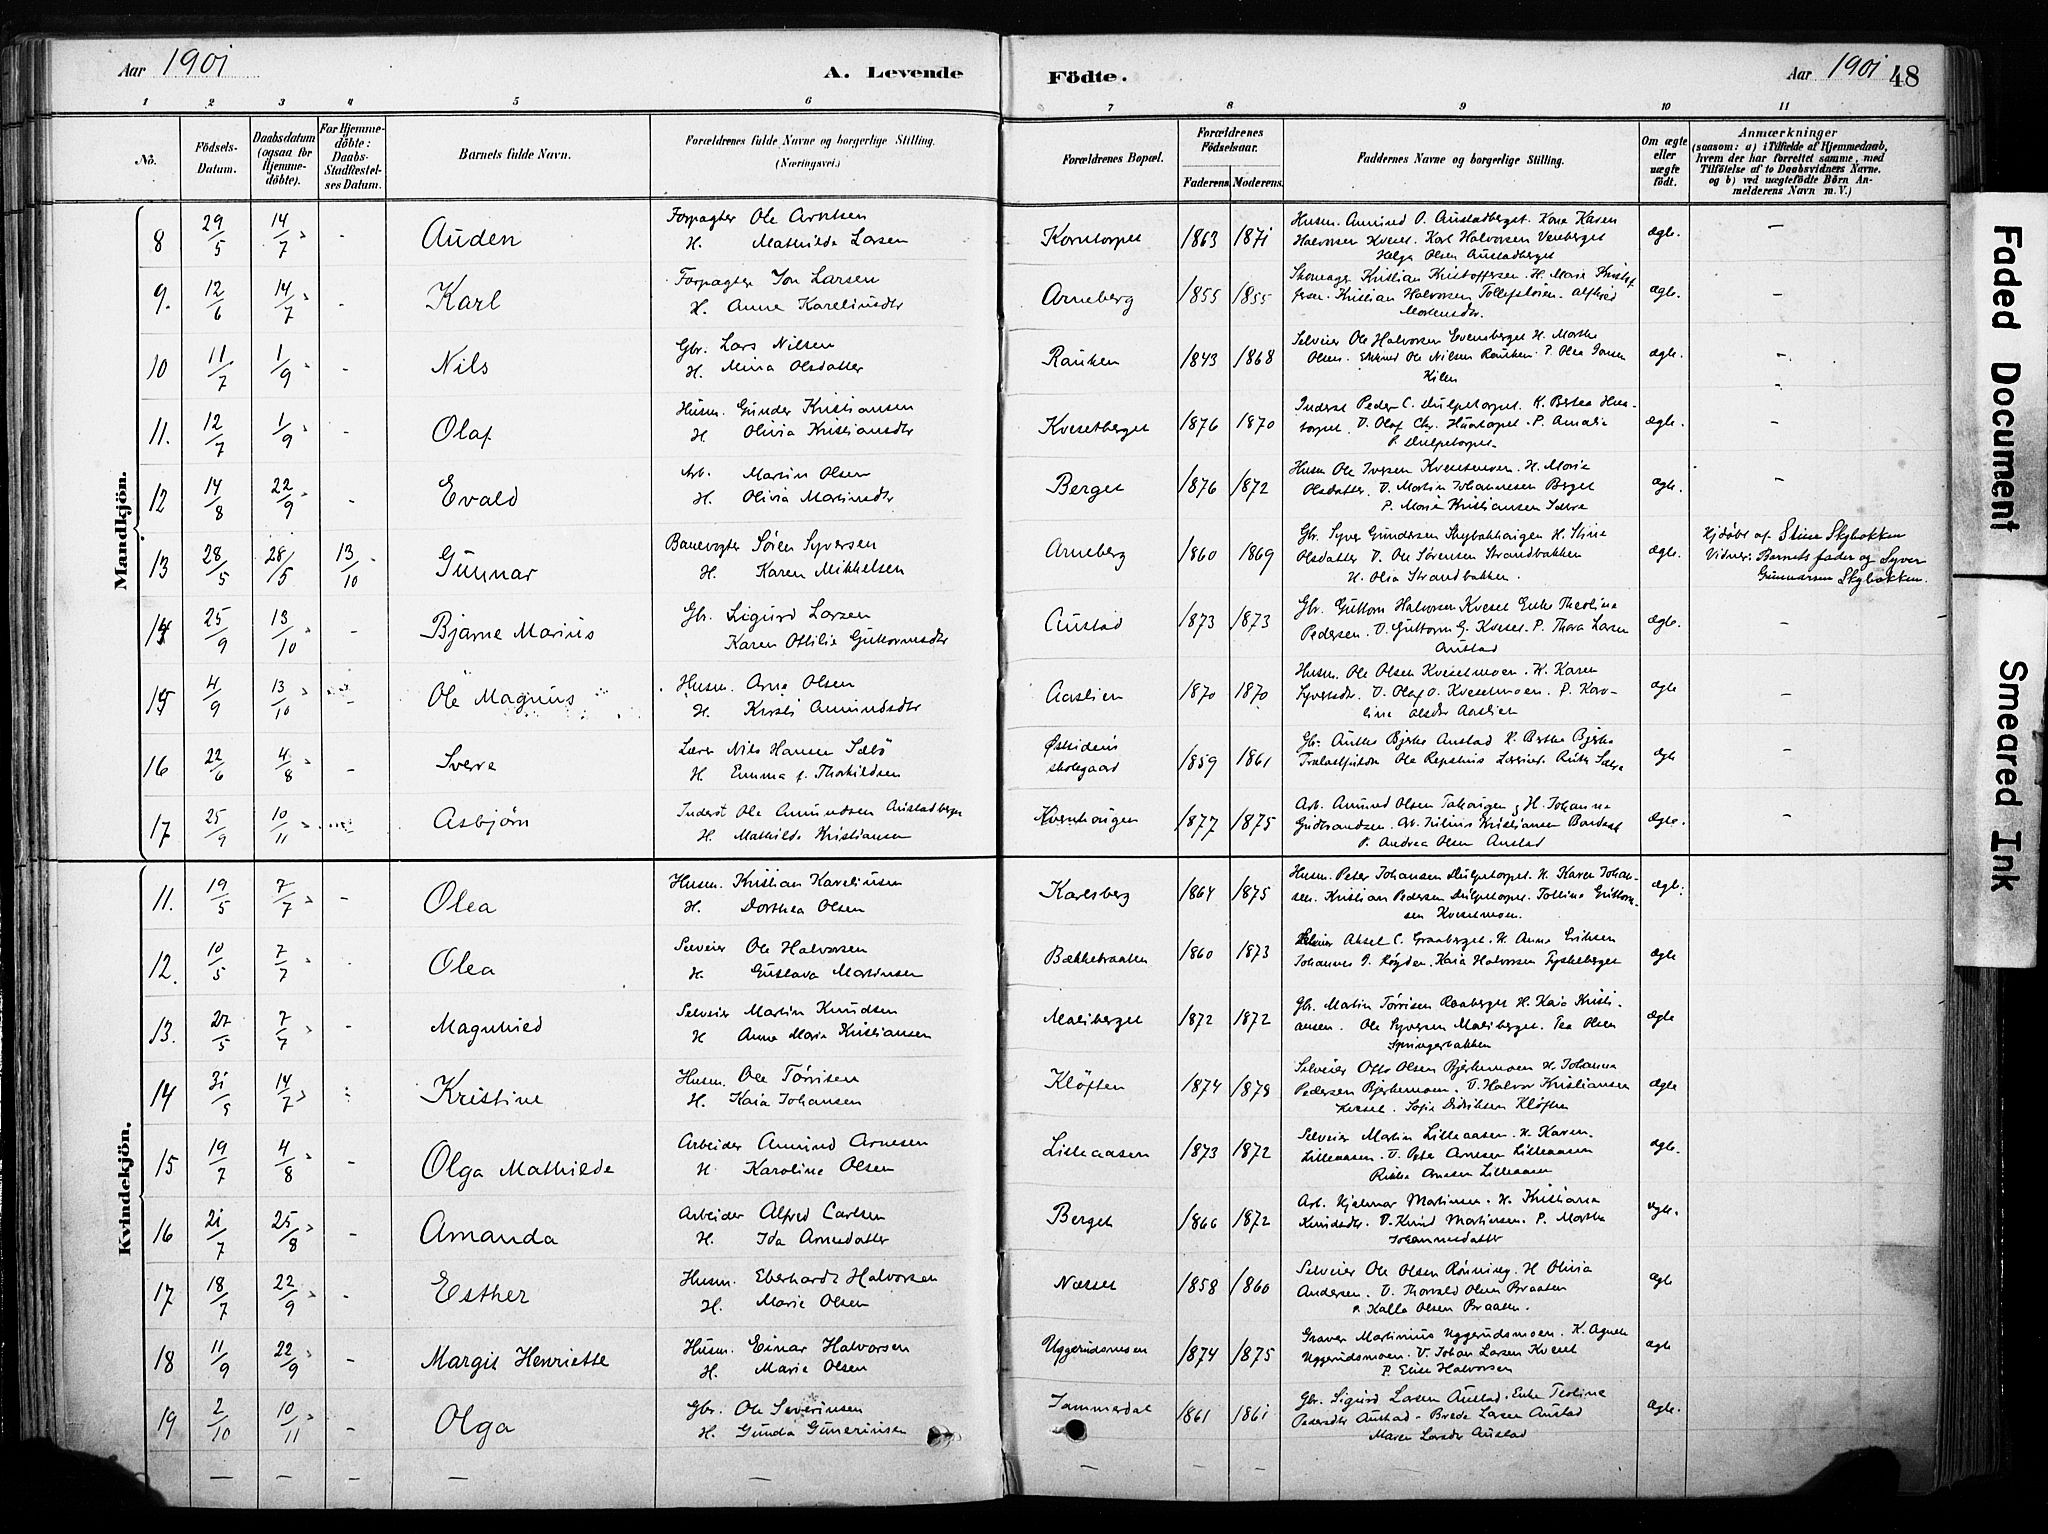 Aar 1901
A. Levende
Födte.
Aar 1901
48
1 2 3 4 5 6 7 8 9 10 11
No.
Födsels-
Datum.
Daabsdatum
(ogsaa for
Hjemme-
döbte).
For Hjemme-
döbte:
Daabs-
Stadfæstel-
ses Datum.
Barnets fulde Navn.
Forældrenes fulde Navne og borgerlige Stilling.
(Næringsvei.)
Forældrenes Bopæl.
Forældrenes
Födselsaar.
Faderens. Moderens.
Faddernes Navne og borgerlige Stilling.
Om ægte
eller
uægte
födt.
Anmærkninger
(saasom: a) i Tilfælde af Hjemmedaab,
hvem der har forrettet samme, med
Tilföielse af to Daabsvidners Navne.
og b) ved uægtefödte Börn An-
melderens Navn m. V.)
Mandkjön.
8 29/5 14/7 - Auden
Forpagter Ole Arntsen
H. Mathilde Larsen
Korntorpet 1863 1871
Husm. Amund O. Austadberget. Kone Karen
Halvorsen Kveset. Karl Halvorsen Venberget
Helga Olsen Austadberget
ægte. -
9. 12/6 14/7 - Karl
Forpagter Jon Larsen
H. Anne Kareliusdtr
Arneberg 1855 1855
Skomager Kristian Kristoffersen. H. Marie Kristof
fersen. Kristian Halvorsen
Mortensdtr.
ægte. -
10 11/7 1/9 - Nils
Gbr. Lars Nilsen
H. Mina Olsdatter
Rauken 1843 1868
Selveier Ole Halvorsen Evensberget H. Marthe
Olsen. Ole Nilsen Rauken. P. Olea Jonsen
Kilen
ægte. -
11. 12/7 1/9 - Olaf
Husm. Gunder Kristiansen
H Olivia Kristiansdtr
Kvesetberget 1876 1870
Inderst Peder C. Dulpetorpet. K. Bertea Hus-
torpet. U. Olaf Chr. Hustorpet. P. Amalie
P. Dulpetorpet.
ægte. -
12 14/8 22/9 - Evald
Arb. Martin Olsen
H. Olivia Martinsdtr
Berget 1876 1872
Husm Ole Iversen Kvesetmoen. H. Marie
Olsdatter. U. Martin Johannesen Berget
P. Marie Kristiansen Sætre
ægte. -
13 28/5 28/5 13/10 Gunnar
Banevogter Søren Syversen
H. Karen Mikkelsen
Arneberg 1860 1869
Gbr. Syver Gundersen Skybakhaugen H. Stine
Olsdatter U. Ole Sørensen Strandbakken
H. Olia Strandbakken.
ægte.
Hjdøbt af Stine Skybakken
Vidner: Barnets fader og Syver
Gunnarsen Skybakken.
14 25/9 13/10 - Bjarne Marius
Gbr. Sigurd Larsen
Karen Ottilie Guttormsdtr
Austad 1873 1873
Gbr. Guttorm Halvorsen Kveset Enke Theoline
Pedersen. U. Guttorm G. Kveset. P. Thora Larsen
Austad
ægte. -
15 4/9 13/10 - Ole Magnus
Husm. Arne Olsen
H. Kirsti Amundsdtr
Aaslien 1870 1870
Husm. Ole Olsen Kvesetmoen. H. Karen
Syversdtr. U. Olaf O. Kvesetmoen. P. Karo-
line Olsdtr Aaslien
ægte -
16 22/6 4/8 - Sverre
Lærer Nils Hansen Sæbø
H Emma f. Thorkildsen
Østsidens
skolegaard 1859 1861
Gbr. Bjerke Austad H. Berthe Bjerke
ægte -
17 25/9 10/11 - Asbjørn
Inderst Ole Amundsen Austadberget
H. Mathilde Kristiansen
Kvernhaugen 1877 1875
Arb. Amund Olsen Tahaugen og H. Johanna
Gudbrandsen. Arb. Julius Kristiansen
P. Andrea Olsen Austad
ægte. -
Kvindekjön.
11. 19/5 7/7 - Olea
Husm. Kristian Kareliusen
H. Dorthea Olsen
Karlsberg 1864 1875
Husm. Peter Johansen Dulpetorpet. H. Karen Johan-
sen. Kristian Pedersen Dulpetorpet. Tolline Guttorm-
sen Kvesetmoen.
ægte.
12. 10/5 7/7 - Olea
Selveier Ole Halvorsen
H Gustava Martinsen
Bækkebraaten 1860 1873
Selveier Aksel C. Graaberget. H. Anna Eriksen
Johannes J. Røgden. Kaia Halvorsen Tyskeberget
ægte
13. 27/5 7/7 - Magnhild
Selveier Martin Knudsen
H Anne Marie Kristiansen
Maliberget 1872 1872
Gbr. Martin Tørrisen Raaberget H. Kaia Kristi-
ansen. Ole Syversen Maliberget. Tea Olsen
Springerbakken
ægte
14 31/5 14/7 - Kristine
Husm. Ole Tørrisen
H. Kaia Johansen
Kløften 1874 1878
Selveier Otto Olsen Bjerkemoen H. Johanna
Pedersen Bjerkemoen. U. Halvor Kristiansen
Kveset. Sofie Didriksen Kløften
ægte
15 19/7 4/8 - Olga Mathilde
Arbeider Amund Arnesen
H Karoline Olsen
Lilleaasen 1873 1872
Selveier Martin Lilleaasen. H. Karen
Lilleaasen. U. Peter Arnesen Lilleaasen
Arnesen Lilleaasen
ægte.
16 21/7 25/8 - Amanda
Arbeider Alfred Carlsen
H. Ida Arnesdatter
Berget 1866 1872
Arb. Hjalmar Martinsen. H. Kristiane
Knudsdtr. U. Knud Martinsen. P. Marthe
Johannesdatter
ægte.
17 18/7 22/9 - Esther
Husm. Eberhardt Halvorsen
H. Marie Olsen
Næsset 1858 1860
Selveier Ole Olsen Rønning. H Olivia
Andersen. U. Thorvald Olsen Braaten
P. Kalla Olsen Braaten.
ægte
18 11/9 22/9 - Margit Henriette
Husm. Einar Halvorsen
H. Marie Olsen
Uggerudsmoen 1874 1875
Graver Martinius Uggerudsmoen. K. Agnete
Uggerudsmoen. U. Johan Larsen Kveset
P. Elise Halvorsen
ægte
19 2/10 10/11 - Olga
Gbr. Ole Severinsen
H. Gunda Gunerinsen
Jammerdal 1861 1861
Gbr. Sigurd Larsen Austad. Enke Teoline
Pedersdtr Austad - Brede Larsen Austad
Maren Larsdtr Austad
ægte.
Faded Document
Smeared Ink